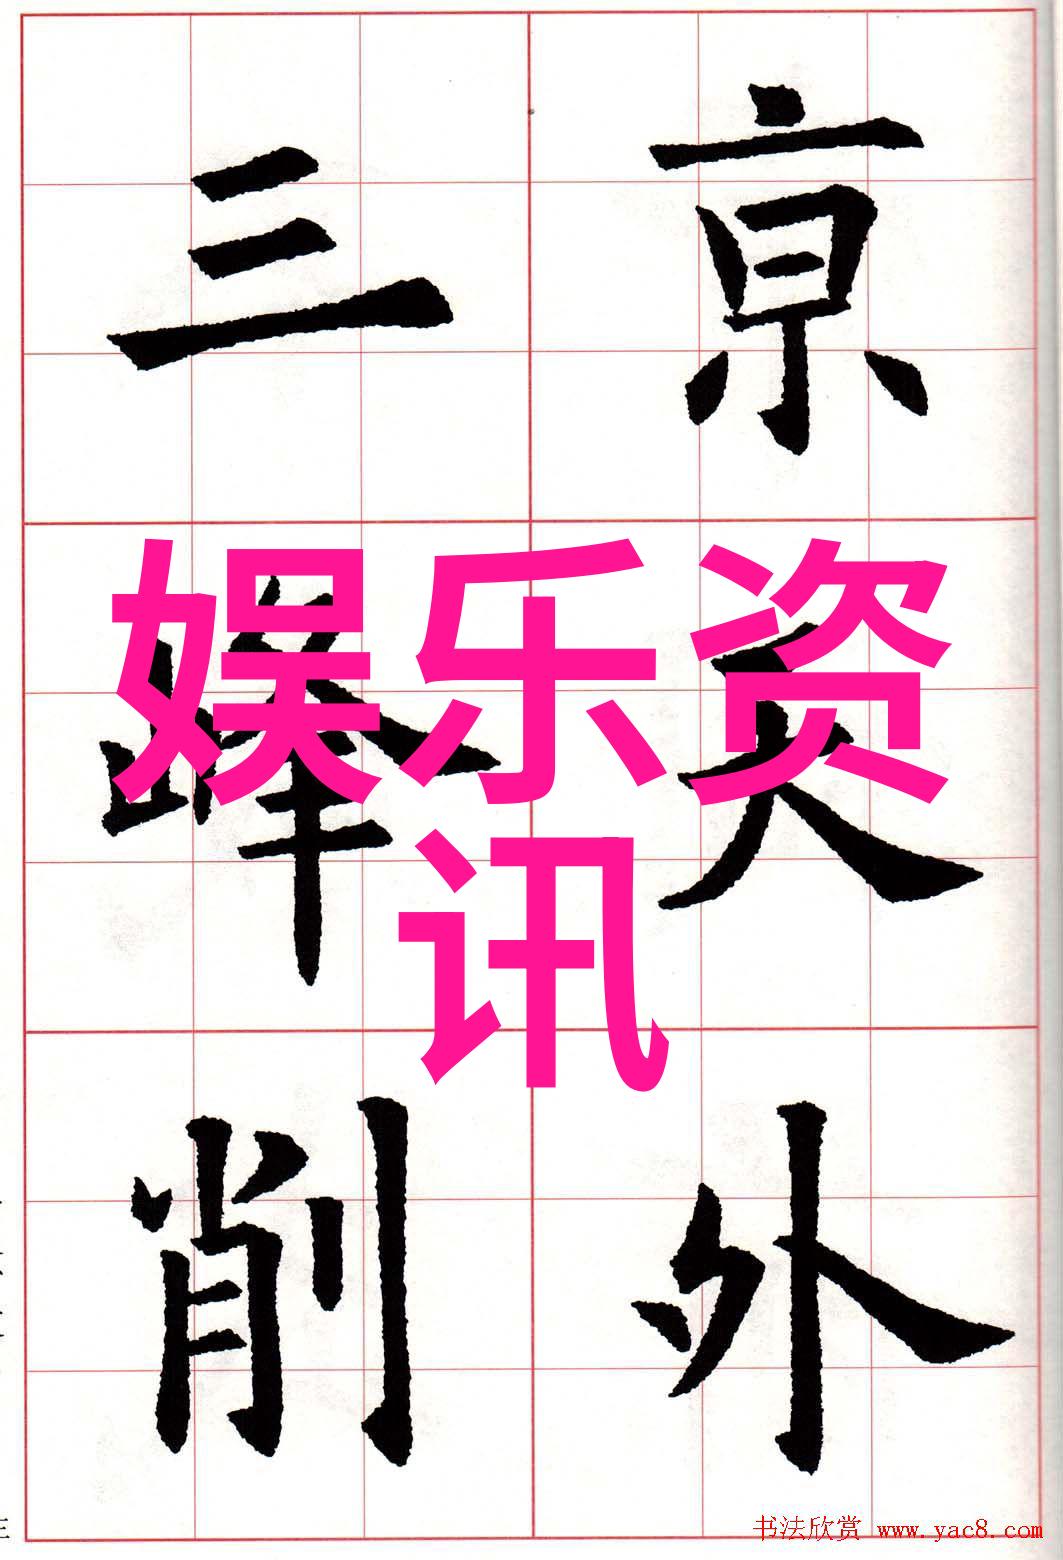 亰天外
三峰削
娱乐资
讯
书法欣赏 www.yac8.com